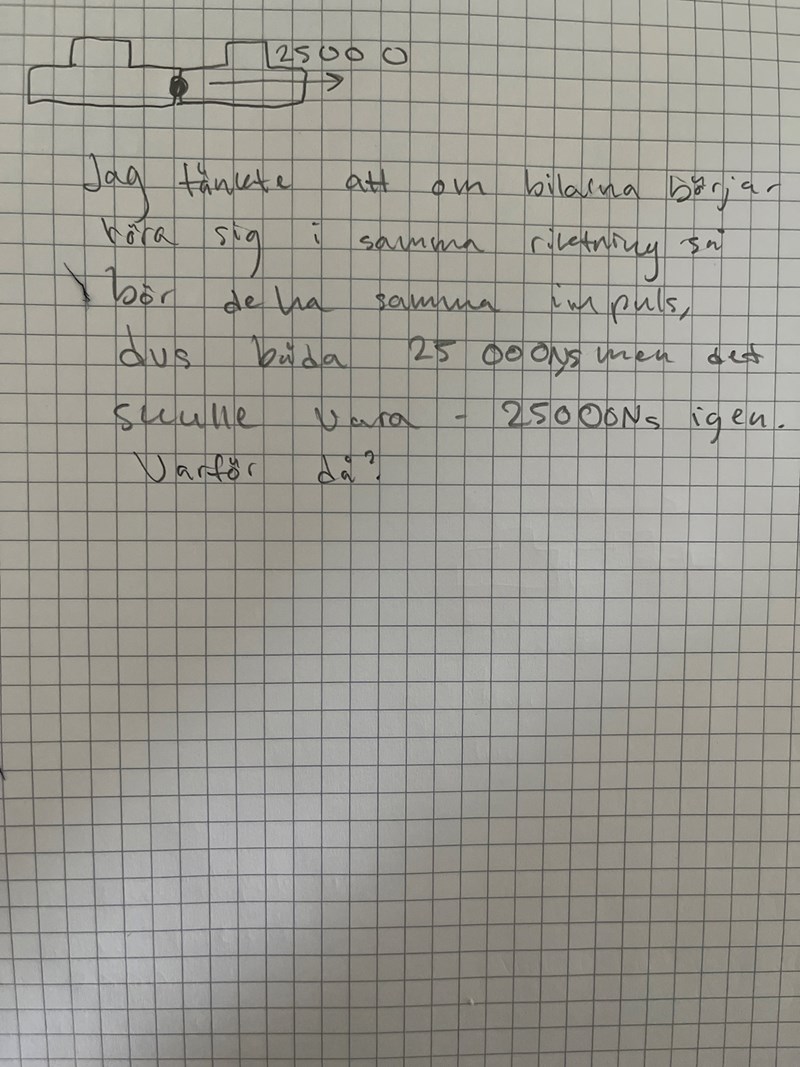 25000
Jag tänkte att om bilarna börjar
röra sig i samma riktning så
bör de ha samma impuls,
dvs båda 25 000Ns men det
skulle vara - 25000Ns igen.
Varför då?